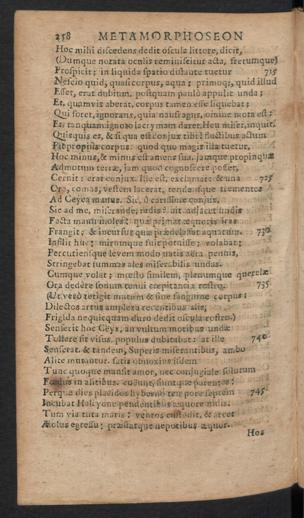 258 METAMORPHOSEON
Hoc mihi discedens dedit oscula littore, dicit,
(Dumque notata oculis reminiscitur acta, fretumque)
Prospicit; in liquida spatio distante tuetur 715
Nescio quid, quasi corpus, aqua: primoque, quid illud
Esset, erat dubium, postquam paulò appulit unda;
Et, quamvis aberat, corpus tamen esse liquebat;
Qui foret, ignorans, quia naufragus, omine mota est:
Et tanquam ignoto lacrymam daret, Heu miser, inquit,
Quisquis es, & si qua est conjux tibi! fluctibus actum
Fit propius corpus: quod quo magis illa tuetur,
Hoc minus, & minus est amens sua. jamque propinquæ
Admotum terræ, jam quod cognoscere posset,
Cernit: erat conjux. Ille est, exclamat: & una 725
Ora, comas, vestem lacerat, tendensque trementes
Ad Ceyca manus, Sic, ô carissime conjux,
Sic ad me, miserande, redis? ait. adjacet undis
Facta manu moles: quæ primas æquoris iras
Frangit; & incursus quæ prædelassat aquarum. 730
Insilit huc: mirumque fuit potuisse; volabat;
Percutiensque levem modo natis aëra pennis,
Stringebat summas ales miserabilis undas.
Dumque volat; mœsto similem, plenumque querelæ
Ora dedere sonum tenui crepitantia rostro. 735
Ut verò tetigit mutum & sine sanguine corpus;
Dilectos artus amplexa recentibus alis,
Frigida nequicquam duro dedit oscula rostro.
Senserit hoc Cëyx, an vultum motibus undæ
Tollere sit visus, populus dubitabat: at ille 740
Senserat. & tandem, Superis miserantibus, ambo
Alite mutantur. fatis obnoxius isdem
Tunc quoque mansit amor, nec conjugiale solutum
Fœdus in alitibus. coëunt, fiuntque parentes:
Perque dies placidos hyberno tempore septem 745
Incubat Halcyone pendentibus æquore nidis.
Tum via tuta maris: ventos custodit, & arcet
Æolus egressu; præstatque nepotibus æquor.
Hos